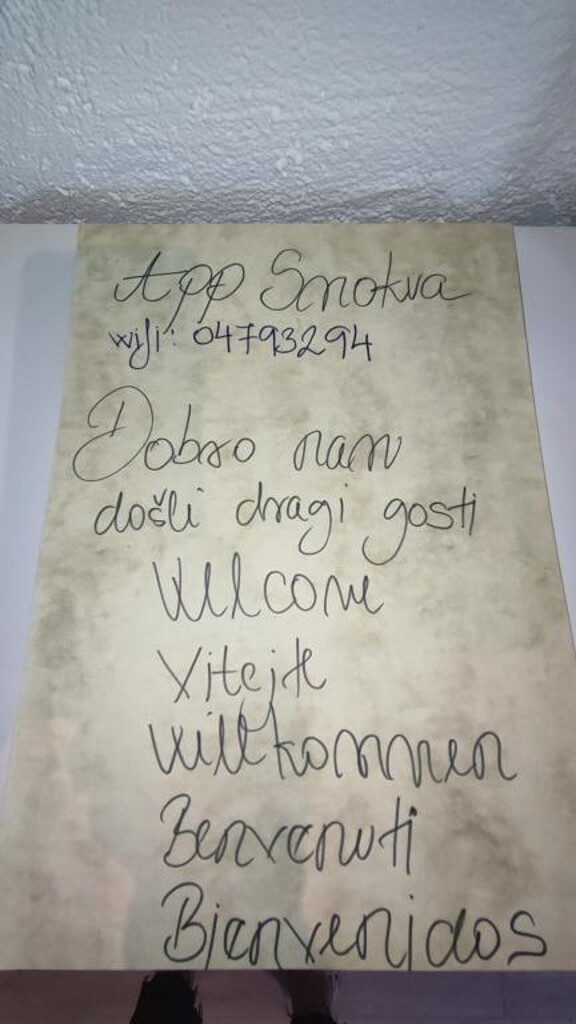 App Smokva
wifi: 04793294
Dobro nam
došli dragi gosti
Welcome
Vitejte
Willkommen
Benvenuti
Bienvenidos